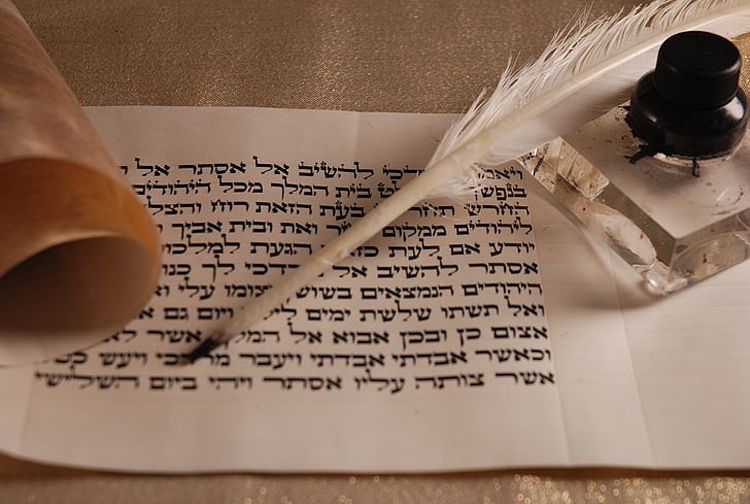 להשיב אל אסתר אל
בית המלך מכל היהודים
החרש בעת הזאת רוח
ליהודים ממקום ואת ובית אביך
יודע אם לעת הגעת
אסתר להשיב אל לך
היהודים הנמצאים בשושן וצומו עלי
ואל תשתו שלשת ימים ויום גם
אצום כן ובכן אבוא אל המלך אשר
וכאשר אבדתי אבדתי ויעבר ויעש
אשר צותה עליו אסתר ויהי ביום השלישי